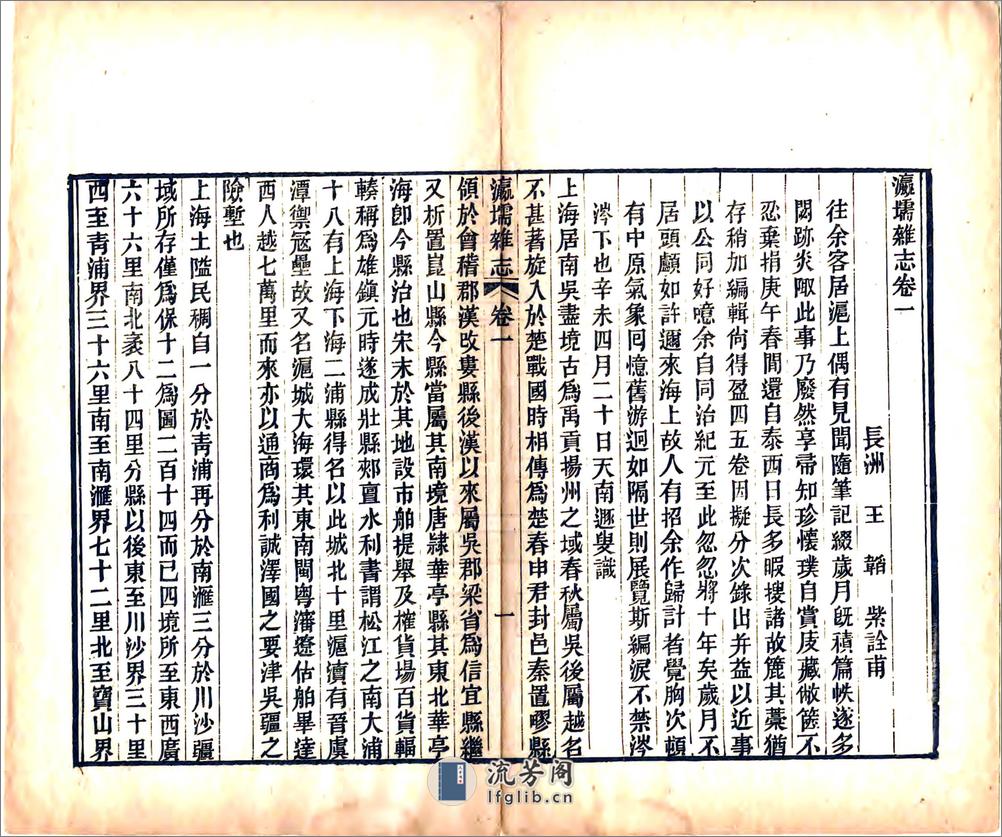 瀛壖雜志卷一
長洲　王　韜　紫詮甫
往余客居滬上偶有見聞隨筆記綴歲月旣積篇帙遂多
閼跡炎陬此事乃廢然享帚知珍懷璞自賞庋藏敝篋不
忍棄捐庚午春間還自泰西日長多暇搜諸故簏其藁猶
存稍加編輯尙得盈四五卷因擬分次錄出幷益以近事
以公同好噫余自同治紀元至此忽忽將十年矣歲月不
居頭顱如許邇來海上故人有招余作歸計者覺胸次頓
有中原氣象囘憶舊游迥如隔世則展覽斯編淚不禁涔
涔下也辛未四月二十日天南遯叟識
上海居南吳盡境古爲禹貢揚州之域春秋屬吳後屬越名
不甚著旋入於楚戰國時相傳爲楚春申君封邑秦置疁縣
瀛壖雜志　卷一　一
領於會稽郡漢改婁縣後漢以來屬吳郡梁省爲信宜縣繼
又析置崑山縣今縣當屬其南境唐隸華亭縣其東北華亭
海卽今縣治也宋末於其地設市舶提舉及榷貨場百貨輻
輳稱爲雄鎭元時遂成壯縣郟亶水利書謂松江之南大浦
十八有上海下海二浦縣得名以此城北十里滬瀆有晉虞
潭禦寇壘故又名滬城大海環其東南閩粤瀋遼估舶畢達
西人越七萬里而來亦以通商爲利誠澤國之要津吳疆之
險塹也
上海土隘民稠自一分於靑浦再分於南滙三分於川沙疆
域所存僅爲保十二爲圖二百十四而已四境所至東西廣
六十六里南北袤八十四里分縣以後東至川沙界三十里
西至靑浦界三十六里南至南滙界七十二里北至寶山界
流芳閣
lfglib.cn